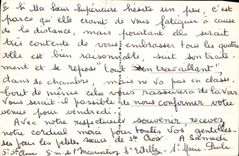 Si Ma Sœur Supérieure hésite un peu, c'est
parce qu'elle craint de vous fatiguer à cause
de la distance, mais pourtant elle serait
très contente de vous embrasser tous les quatre
elle est bien raisonnable, suit son trait-
ement et se repose tout en travaillant
dans sa chambre, mais ne va pas en classe.
bout de même cela vous rassurera de la voir
Vous serait-il possible de nous confirmer votre
venue pour vendredi.
Avec notre respectueux souvenir recevez
notre cordial merci pour toutes vos gentilles-
ses pour les petites sœurs de Ste